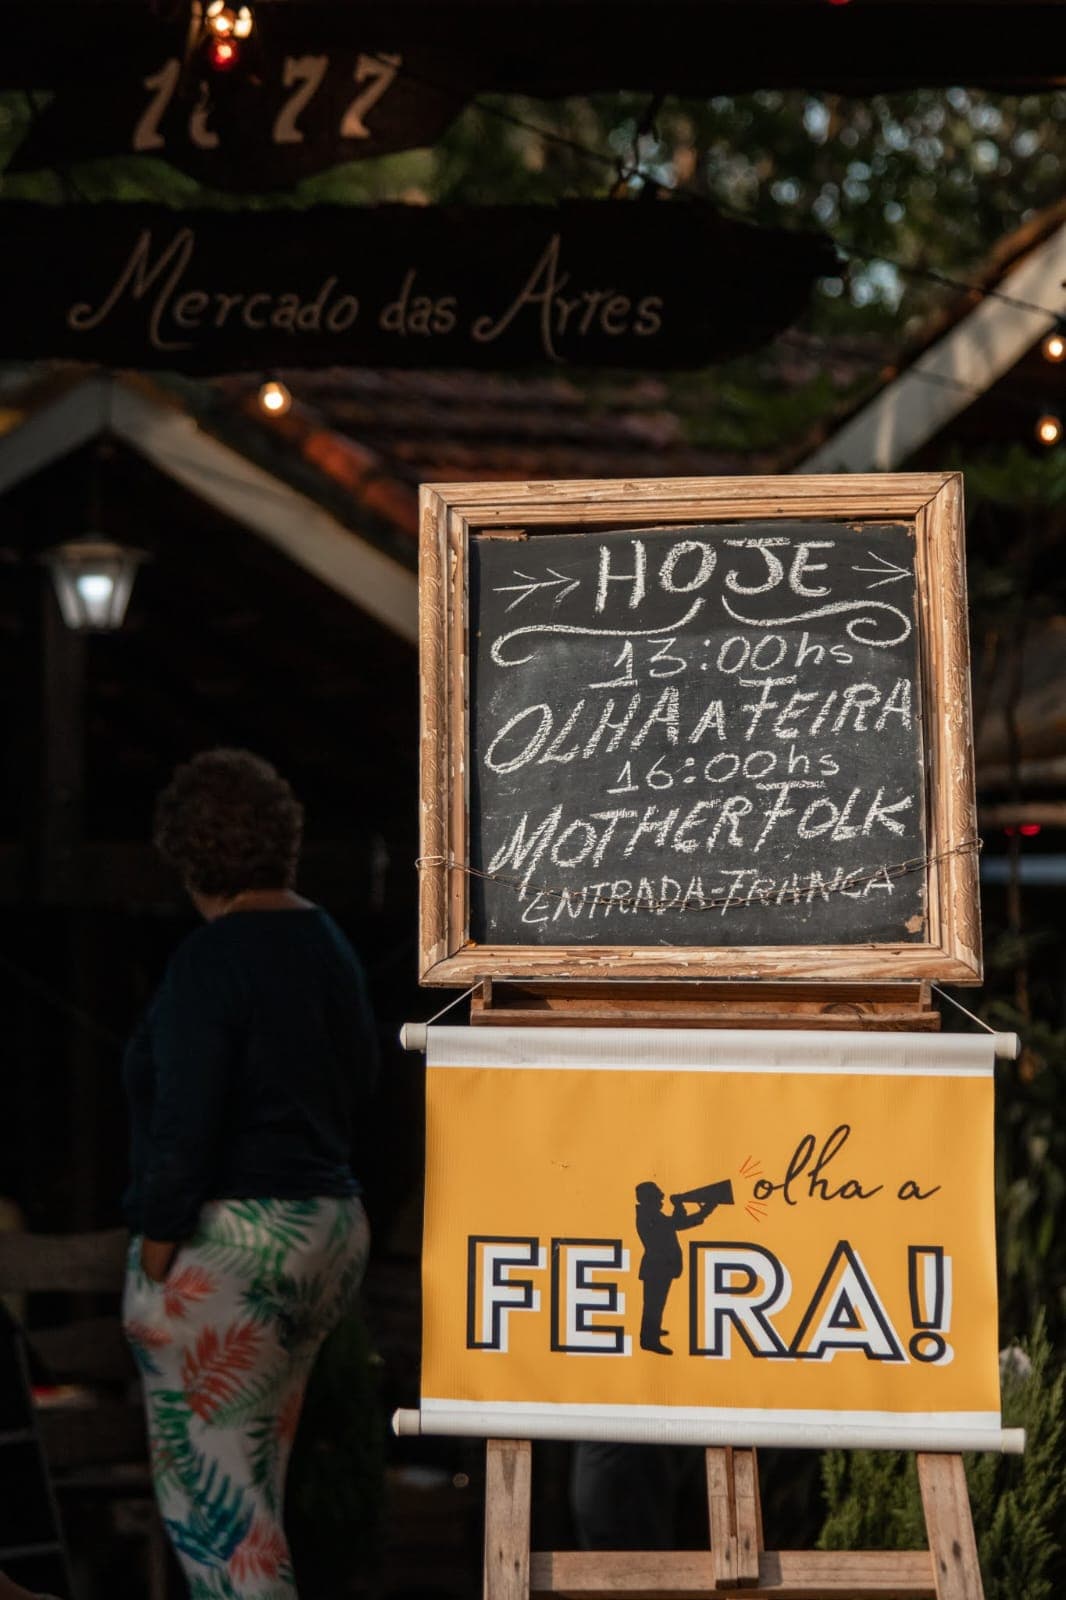 1877
Mercado das Artes
HOJE
13:00hs
OLHA A FEIRA
16:00hs
MOTHER FOLK
ENTRADA-FRANCA
olha a
FEIRA!